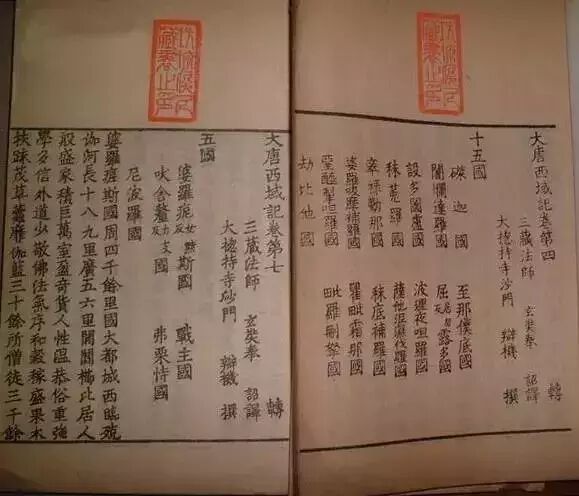 大唐西域記卷第四 轉
三藏法師 玄奘奉 詔譯
大捴持寺沙門 辯機 撰
十五國
磔迦國 至那僕底國
闍爛達羅國 屈露多國
設多圖盧國 波理夜呾羅國
秣菟羅國 薩他泥濕伐羅國
窣祿勤那國 秣底補羅國
婆羅吸摩補羅國 瞿毗霜那國
堊醯掣呾羅國 毗羅刪拏國
劫比他國
大唐西域記卷第七 轉
三藏法師 玄奘奉 詔譯
大捴持寺沙門 辯機 撰
五國
婆羅痆女黠反斯國 戰主國
吠舍釐力支反國 弗栗恃國
尼波羅國
婆羅痆斯國周四千餘里國大都城西臨殑
伽河長十八九里廣五六里閭閻櫛比居人
殷盛家積巨萬室盈奇貨人性温恭俗重強
學多信外道少敬佛法氣序和穀稼盛果木
扶踈茂草靃靡伽藍三十餘所僧徒三千餘